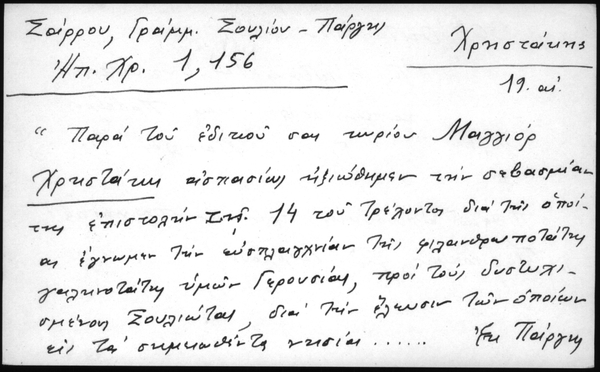 Σάρρου, Γράμμ. Σουλίου - Πάργης
Ἠπ. Χρ. 1, 156
Χρηστάκης
19. αἰ.
“ Παρά τοῦ ἐδικοῦ σας κυρίου Μαγγιόρ
Χρηστάκη ἀσπασίως ἠξιώθημεν τήν σεβασμίαν
της ἐπιστολήν 14 τοῦ τρέχοντος διά τῆς ὁποί-
ας ἔγνωμεν τήν εὐσπλαγχνίαν τῆς φιλανθρωποτάτης
γαληνοτάτης ὑμῶν Γερουσίας, πρός τούς δυστυχι-
σμένους Σουλιώτας, διά τήν ἔλευσιν τῶν ὁποίων
εἰς τά νησία ...... Ἐκ Πάργης